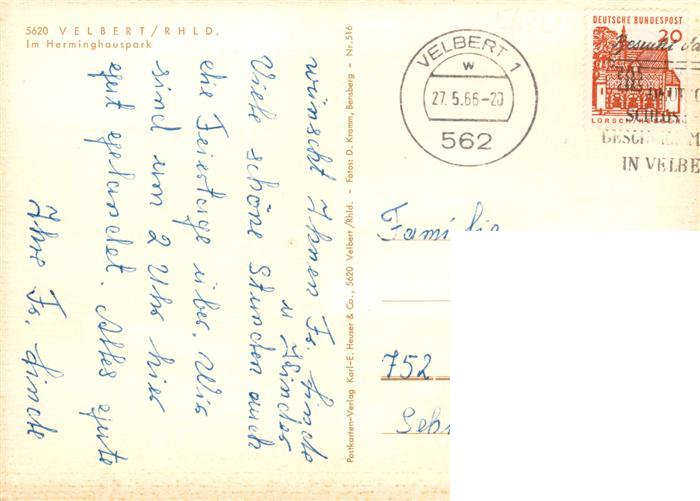 5620 VELBERT/RHLD.
Im Herminghauspark
wünscht Ihnen Fr. Linde
u Kinder
Viele schöne Stunden auch
die Feiertage über. Wir
sind um 2 Uhr hier
gut gelandet. Alles gute
Ihre Fr. Linde
Postkarten-Verlag Karl-E. Heuser & Co., 5620 Velbert/Rhld. - Fotos: D. Kramm, Bensberg - Nr. 516
VELBERT 1
w
27.5.66-20
562
DEUTSCHE BUNDESPOST
20
LORSCH/HESSEN
Besucht da
DEUT
SCHLOSS
BESCH
IN VELBE
Familie
752